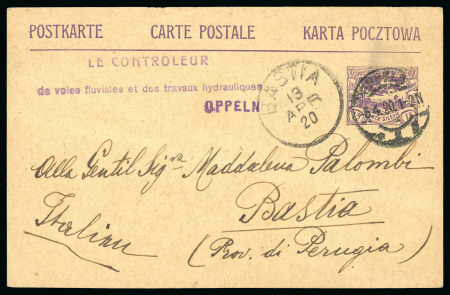 POSTKARTE CARTE POSTALE KARTA POCZTOWA
LE CONTROLEUR
de voies fluviales et des travaux hydrauliques
OPPELN
BASTIA
13
APR
20
6.4.20.1-2N
Alla Gentil Sigra Maddalena Palombi
Bastia
Italien
(Prov. di Perugia)